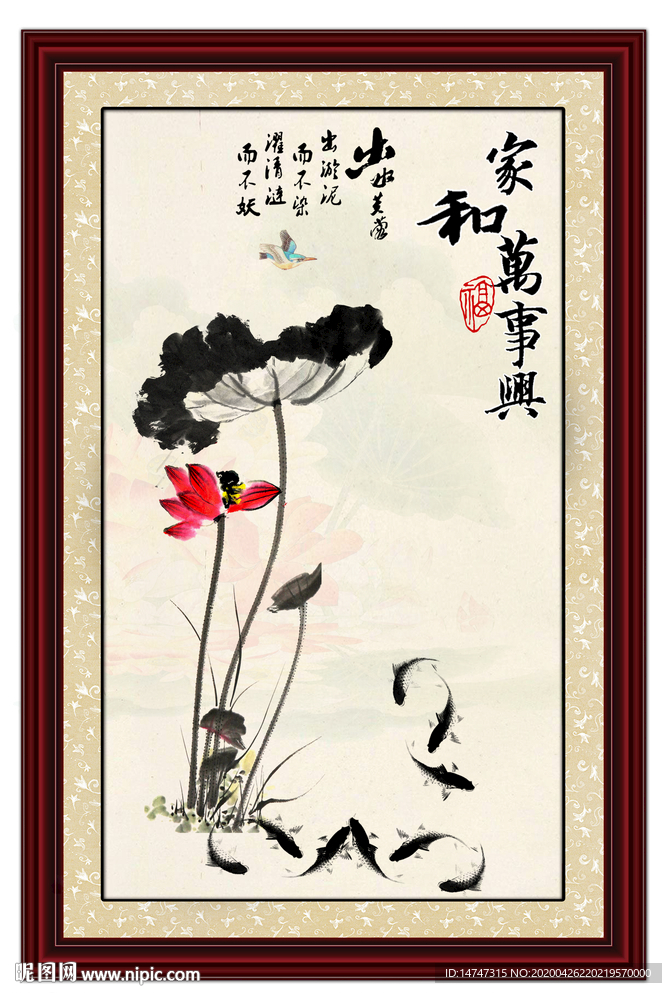 家和萬事興
福
出水芙蓉
出淤泥
而不染
濯清涟
而不妖
昵图网 www.nipic.com
ID:14747315 NO:20200426220219570000